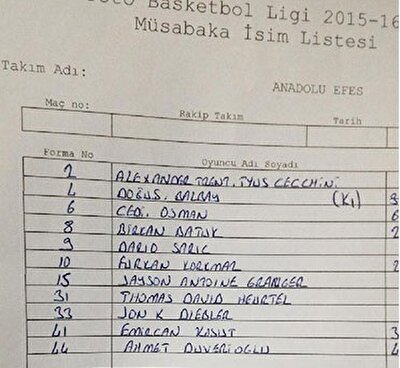 Basketbol Ligi 2015-16
Müsabaka İsim Listesi
Takım Adı:
ANADOLU EFES
Maç no: Rakip Takım Tarih
Forma No Oyuncu Adı Soyadı
2 ALEXANDER TRENT, TYUS CECCHINI
4 DOĞUŞ. BALBAY (K)
6 CEDİ. OSMAN 6
8 BİRKAN BATUK 2
9 DARIO SARIC
10 FURKAN KORKMAZ 2
15 JAYSON ANTOINE GRANGER
31 THOMAS DAVID HEURTEL
33 JON K DIEBLER
41 EMİRCAN KOSUT 3
44 AHMET DUVERIOGLU 4